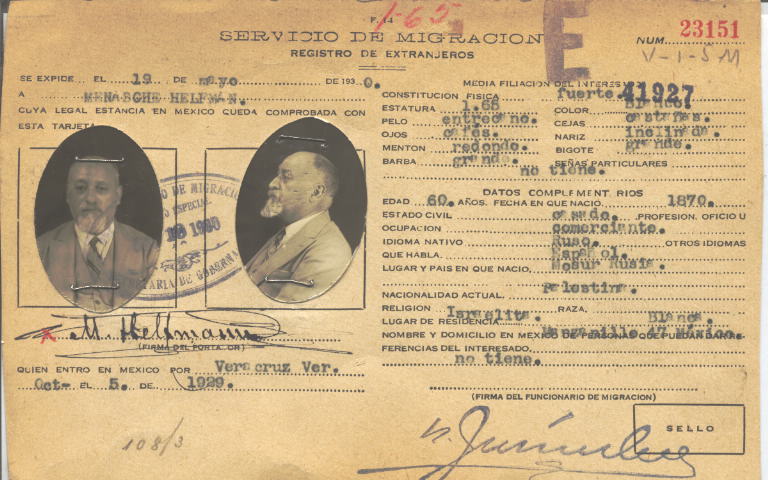 F. 14
1-65
SERVICIO DE MIGRACION
REGISTRO DE EXTRANJEROS
E
NUM. 23151
V-1-5M
SE EXPIDE EL 19 DE mayo DE 1930.
A MENASCHE HELFMAN.
CUYA LEGAL ESTANCIA EN MEXICO QUEDA COMPROBADA CON
ESTA TARJETA
M. Helfmann
(FIRMA DEL PORTADOR)
QUIEN ENTRO EN MEXICO POR Veracruz Ver.
Oct- EL 5. DE 1929.
108/3
MEDIA FILIACION DEL INTERES
41927
CONSTITUCION FISICA fuerte.
ESTATURA 1.65 COLOR Blanco.
PELO entrecano. CEJAS castañas.
OJOS cafés. NARIZ inclinada.
MENTON redondo. BIGOTE grande.
BARBA grande. SEÑAS PARTICULARES
no tiene.
DATOS COMPLEMENTARIOS
EDAD 60. AÑOS. FECHA EN QUE NACIO 1870.
ESTADO CIVIL casado. PROFESION, OFICIO U
OCUPACION comerciante.
IDIOMA NATIVO Ruso. OTROS IDIOMAS
QUE HABLA. Español.
LUGAR Y PAIS EN QUE NACIO, Mosur Rusia.
NACIONALIDAD ACTUAL. Palestina.
RELIGION Israelita. RAZA. Blanca.
LUGAR DE RESIDENCIA Manzanillo 47 México.
NOMBRE Y DOMICILIO EN MEXICO DE PERSONAS QUE PUEDAN DAR RE-
FERENCIAS DEL INTERESADO.
no tiene.
(FIRMA DEL FUNCIONARIO DE MIGRACION)
SELLO